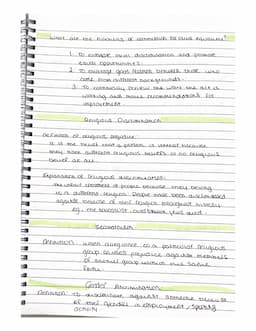 What are the functions of commission for racial equality?
1. To challenge racial discrimination and promote equal opportunities.
2. To encourage good relations between those who come from different backgrounds.
3. To continually review the way the act is working and make recommendations for improvement.
Religious Discrimination
Definition of religious prejudice
It is the when a person is unequal because they have different religious beliefs or no religious belief at all.
Explanation of religious discrimination:
The unfair treatment of people because they belong to a different religion. People have been discriminated against because of their religion throughout history
eg. the holocaust
Sectarianism
Definition: when allegiance to a particular religious group causes prejudice against members of another group within the same faith.
Gender Discrimination
Definition: To discriminate against someone because of their gender in employment, sporting activity